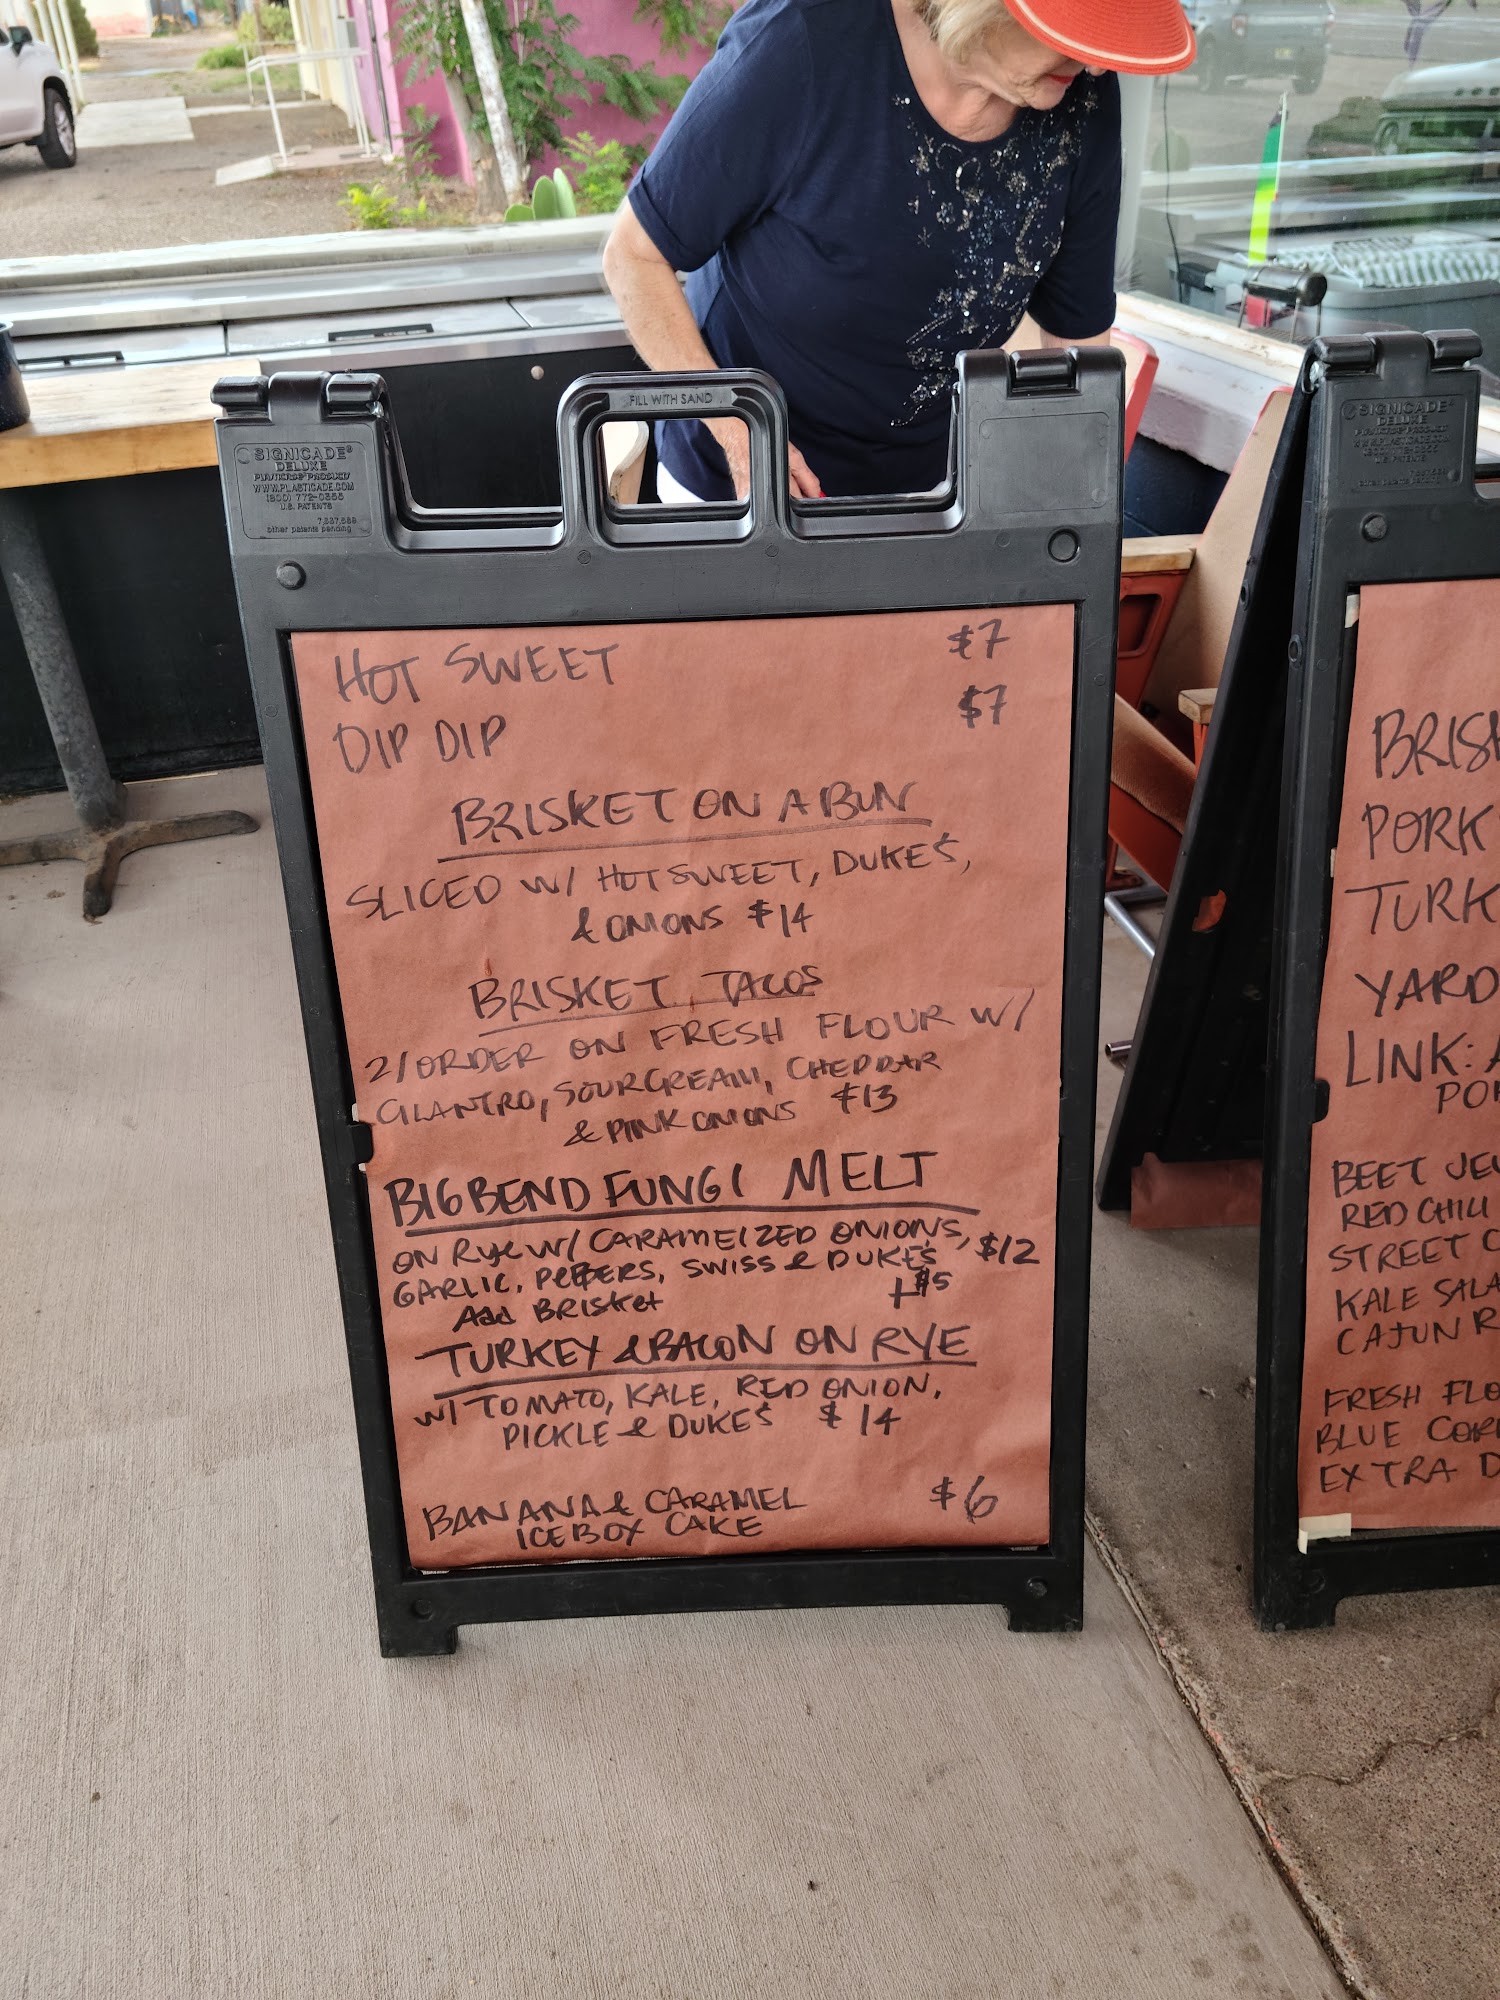 FILL WITH SAND
SIGNICADE®
DELUXE
PLASTICADE PRODUCTS
WWW.PLASTICADE.COM
(800) 772-0355
U.S. PATENTS
other patents pending
HOT SWEET $7
DIP DIP $7
BRISKET ON A BUN
SLICED W/ HOT SWEET, DUKE'S,
& ONIONS $14
BRISKET TACOS
2/ORDER ON FRESH FLOUR W/
CILANTRO, SOUR CREAM, CHEDDAR
& PINK ONIONS $13
BIG BEND FUNGI MELT
ON RYE W/ CARAMELIZED ONIONS, $12
GARLIC, PEPPERS, SWISS & DUKE'S
Add BRISKET +$5
TURKEY & BACON ON RYE
W/ TOMATO, KALE, RED ONION,
PICKLE & DUKE'S $14
BANANA & CARAMEL $6
ICEBOX CAKE
SIGNICADE®
DELUXE
BRISK
PORK
TURK
YARD
LINK: A
POR
BEET JEW
RED CHILI
STREET C
KALE SALA
CAJUN R
FRESH FLO
BLUE COR
EXTRA D